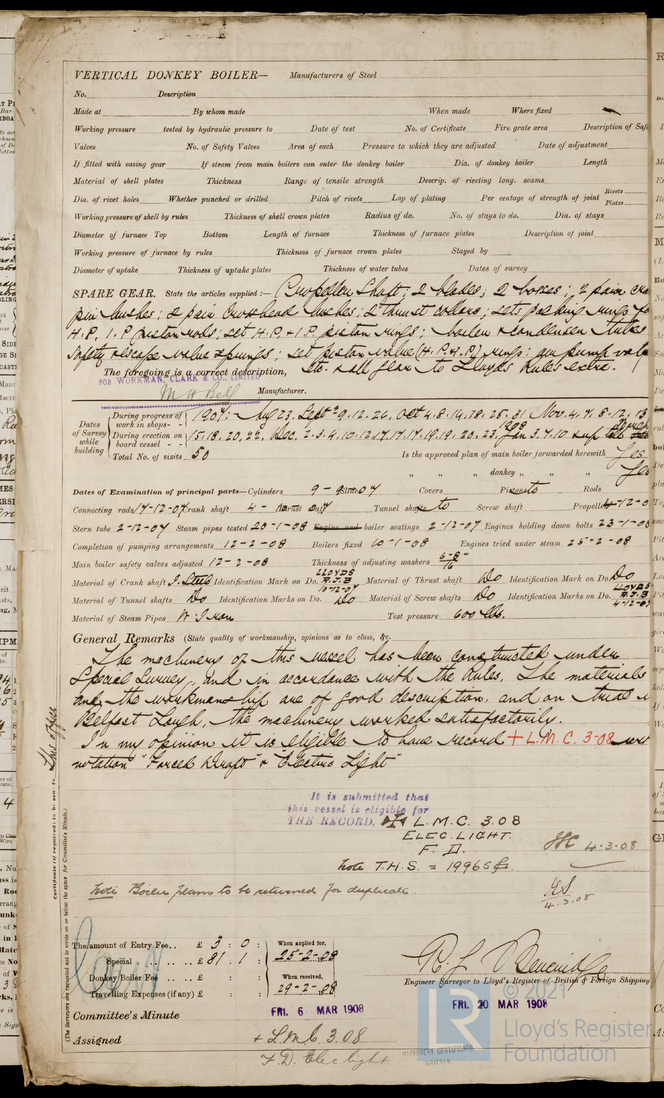 VERTICAL DONKEY BOILER— Manufacturers of Steel
No. Description
Made at By whom made When made Where fixed
Working pressure tested by hydraulic pressure to Date of test No. of Certificate Fire grate area Description of Safe
Valves No. of Safety Valves Area of each Pressure to which they are adjusted Date of adjustment
If fitted with easing gear If steam from main boilers can enter the donkey boiler Dia. of donkey boiler Length
Material of shell plates Thickness Range of tensile strength Descrip. of riveting long. seams
Dia. of rivet holes Whether punched or drilled Pitch of rivets Lap of plating Per centage of strength of joint Rivets Plates
Working pressure of shell by rules Thickness of shell crown plates Radius of do. No. of stays to do. Dia. of stays
Diameter of furnace Top Bottom Length of furnace Thickness of furnace plates Description of joint
Working pressure of furnace by rules Thickness of furnace crown plates Stayed by
Diameter of uptake Thickness of uptake plates Thickness of water tubes Dates of survey
SPARE GEAR. State the articles supplied:— Propeller Shaft; 2 blades; 2 boxes; 2 pair
pin bushes; 2 pair Crosshead bushes; 2 thrust collars; sets packing rings
H.P. I.P piston rods; set H.P. & I.P. piston rings; boiler & condenser tubes
Safety & escape valve springs; set piston valve (H.P. & I.P.) rings: air pump
The foregoing is a correct description, etc. & all gear to Lloyds Rules extra.
FOR WORKMAN, CLARK & CO., LIMITED
Manufacturer.
Dates of Survey while building
During progress of work in shops - - 1907:- Aug 23. Sept 9. 12. 26. Oct 4. 8. 14. 18. 25. 31 Nov. 4. 7. 8. 12. 13
During erection on board vessel - - 15. 18. 20. 22. Dec. 2. 3. 4. 10. 12. 17. 17. 17. 19. 19. 20. 23. 1908 Jan 3. 7. 10
Total No. of visits 50 Is the approved plan of main boiler forwarded herewith Yes
" " " donkey " " " Yes
Dates of Examination of principal parts—Cylinders Covers Pistons Rods
Connecting rods 17-12-07 Crank shaft Thrust Tunnel shafts Screw shaft Propeller
Stern tube 2-12-07 Steam pipes tested 20-1-08 Engine and boiler seatings 2-12-07 Engines holding down bolts 23-1-08
Completion of pumping arrangements 12-2-08 Boilers fixed 10-1-08 Engines tried under steam 25-2-08
Main boiler safety valves adjusted 12-2-08 Thickness of adjusting washers
Material of Crank shaft I. Steel Identification Mark on Do. LLOYDS R.J.B 10-12-07 Material of Thrust shaft Do Identification Mark on Do. Do
Material of Tunnel shafts Do Identification Marks on Do. Do Material of Screw shafts Do Identification Marks on Do. LLOYDS R.J.B 4-12-07
Material of Steam Pipes W. Iron Test pressure 600 lbs.
General Remarks (State quality of workmanship, opinions as to class, &c.
The machinery of this vessel has been constructed under
Special Survey, and in accordance with the Rules. The materials
and the workmanship are of good description, and on trial in
Belfast Lough, the machinery worked satisfactorily.
In my opinion it is eligible to have record + L.M.C. 3-08
notation "Forced Draft" & "Electric Light"
It is submitted that
this vessel is eligible for
THE RECORD. + L.M.C. 3.08
ELEC. LIGHT.
F D.
4.3.08
Note T.H.S. = 19965
4.3.08
Note Boiler plans to be returned for duplicate.
The amount of Entry Fee.. £ 3 : 0 : When applied for,
Special .. .. £ 81 : 1 : 25-2-08
Donkey Boiler Fee .. .. £ When received,
Travelling Expenses (if any) £ 29-2-08
Engineer Surveyor to Lloyd's Register of British & Foreign Shipping
Committee's Minute FRI. 6 MAR 1908 FRI. 20 MAR 1908
Assigned + L.M.C. 3.08
F.D. Elec light.
MACHINERY CERTIFICATE
WRITTEN
© 2021
LR
Lloyd's Register
Foundation